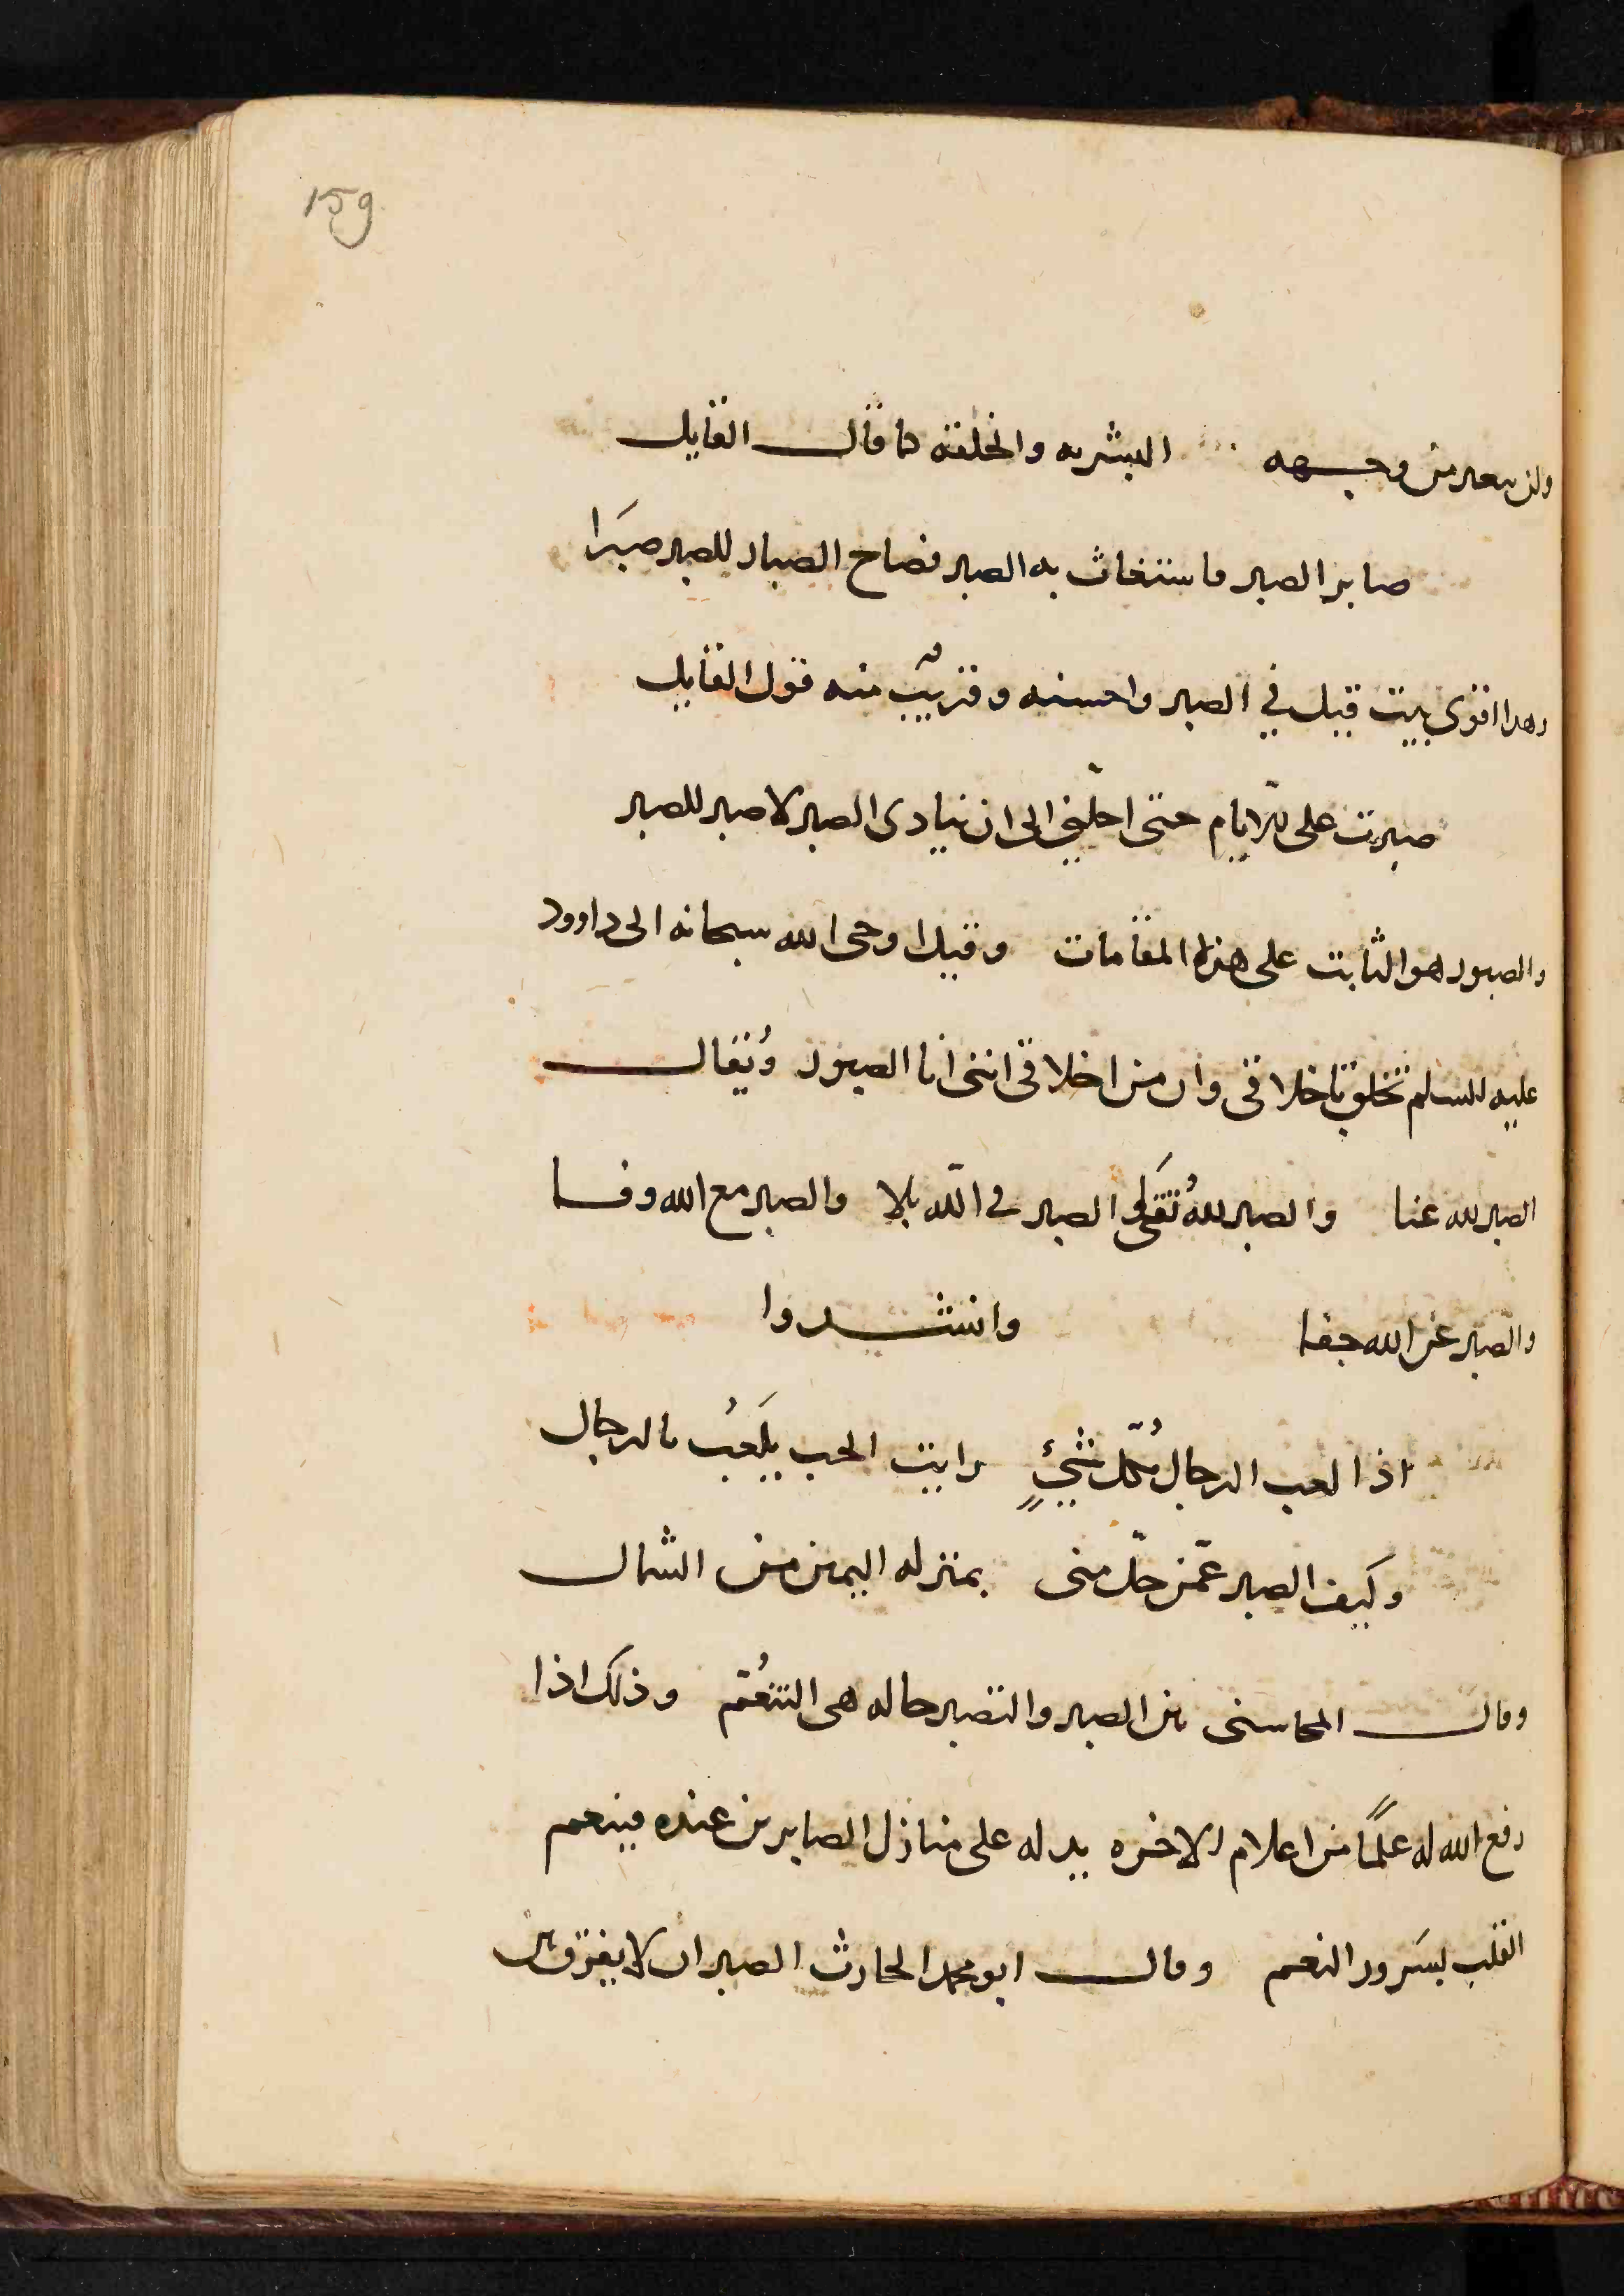 159
ولن يتغير من وجهه البشريه والخلقه كما قال القايل
صابر الصبر فاستغاث به الصبر فصاح الصبار للصبر صبَرا
وهذا اقوى بيت قيل في الصبر واحسنه وقريبٌ منه قول القايل
صبرت على الايام حتى احلّني الى ان ينادى الصبر لا صبر للصبر
والصبور هو الثابت على هذه المقامات وقيل اوحى الله سبحانه الى داوود
عليه السلم تخلق باخلاقى وان من اخلاقى اننى انا الصبور ويُقال
الصبر لله عنا والصبر لله تُقَى والصبر فى الله بلا والصبر مع الله وفا
والصبر عن الله جفا وانشدوا
اذا لعب الرجال بكُلّ شيءٍ رايت الحب يلَعبُ بالرجال
وكيف الصبر عمّن حلّ منى بمنزله اليمين من الشمال
وقال المحاسبى بين الصبر والتصبر حاله هى التنعُّم وذلك اذا
رفع الله له علمًا من اعلام الاخره يدله على منازل الصابرين عنده فينعم
القلب بسَرور النعم وقال ابو محمد الحارث الصبر ان لا يفرّق بين